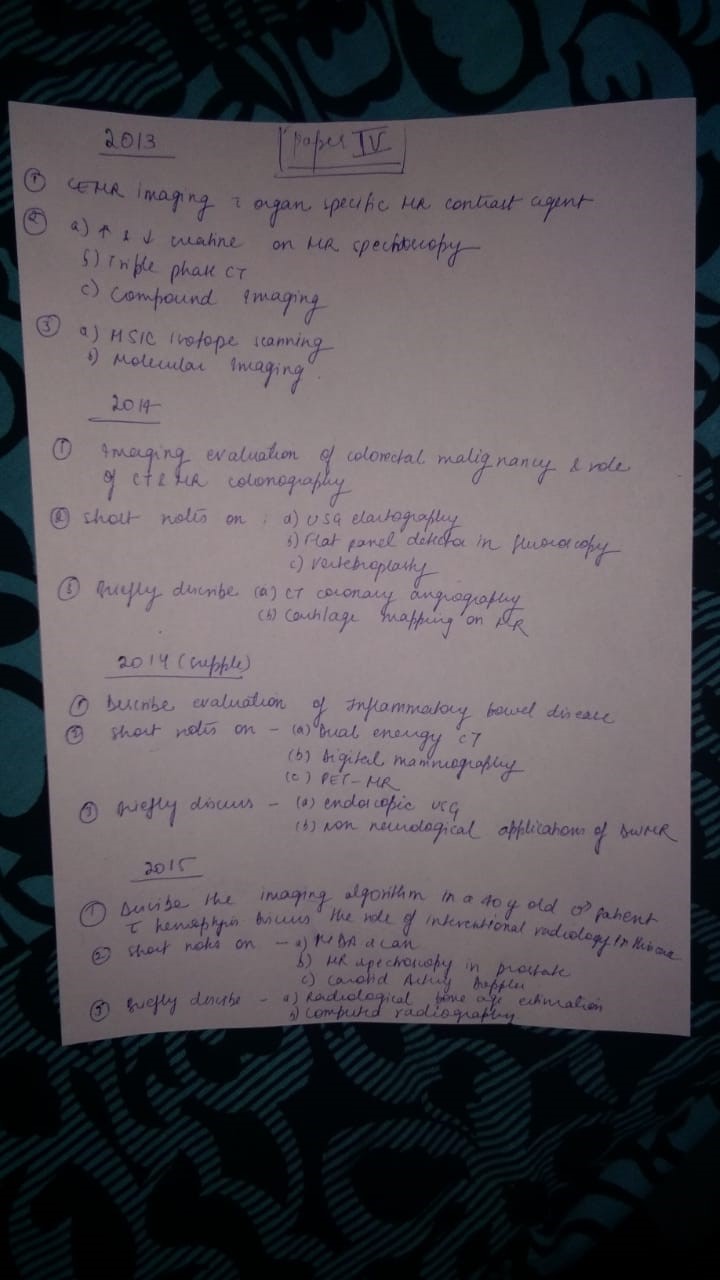 2013
Paper IV
① CEMR Imaging c̄ organ specific MR contrast agent
② a) ↑ & ↓ creatine on MR spectroscopy
b) Triple phase CT
c) Compound Imaging
③ a) isotope scanning
b) Molecular Imaging.
2014
① Imaging evaluation of colorectal malignancy & role
of CT & MR colonography
② Short notes on : a) USG elastography
b) Flat panel detector in fluoroscopy
c) Vertebroplasty
③ Briefly describe (a) CT coronary angiography
(b) Cartilage mapping on MR
2014 (supple)
① Describe evaluation of Inflammatory bowel disease
② Short notes on - (a) Dual energy CT
(b) Digital mammography
(c) PET-MR
③ Briefly discuss - (a) endoscopic USG
(b) non neurological applications of DWMR
2015
① Describe the imaging algorithm in a 40 y old ♂ patient
c̄ hemoptysis Discuss the role of interventional radiology in
② Short notes on - a) scan
b) MR spectroscopy in prostate
c) Carotid Artery Doppler
③ Briefly describe - a) Radiological bone age estimation
b) Computed radiography